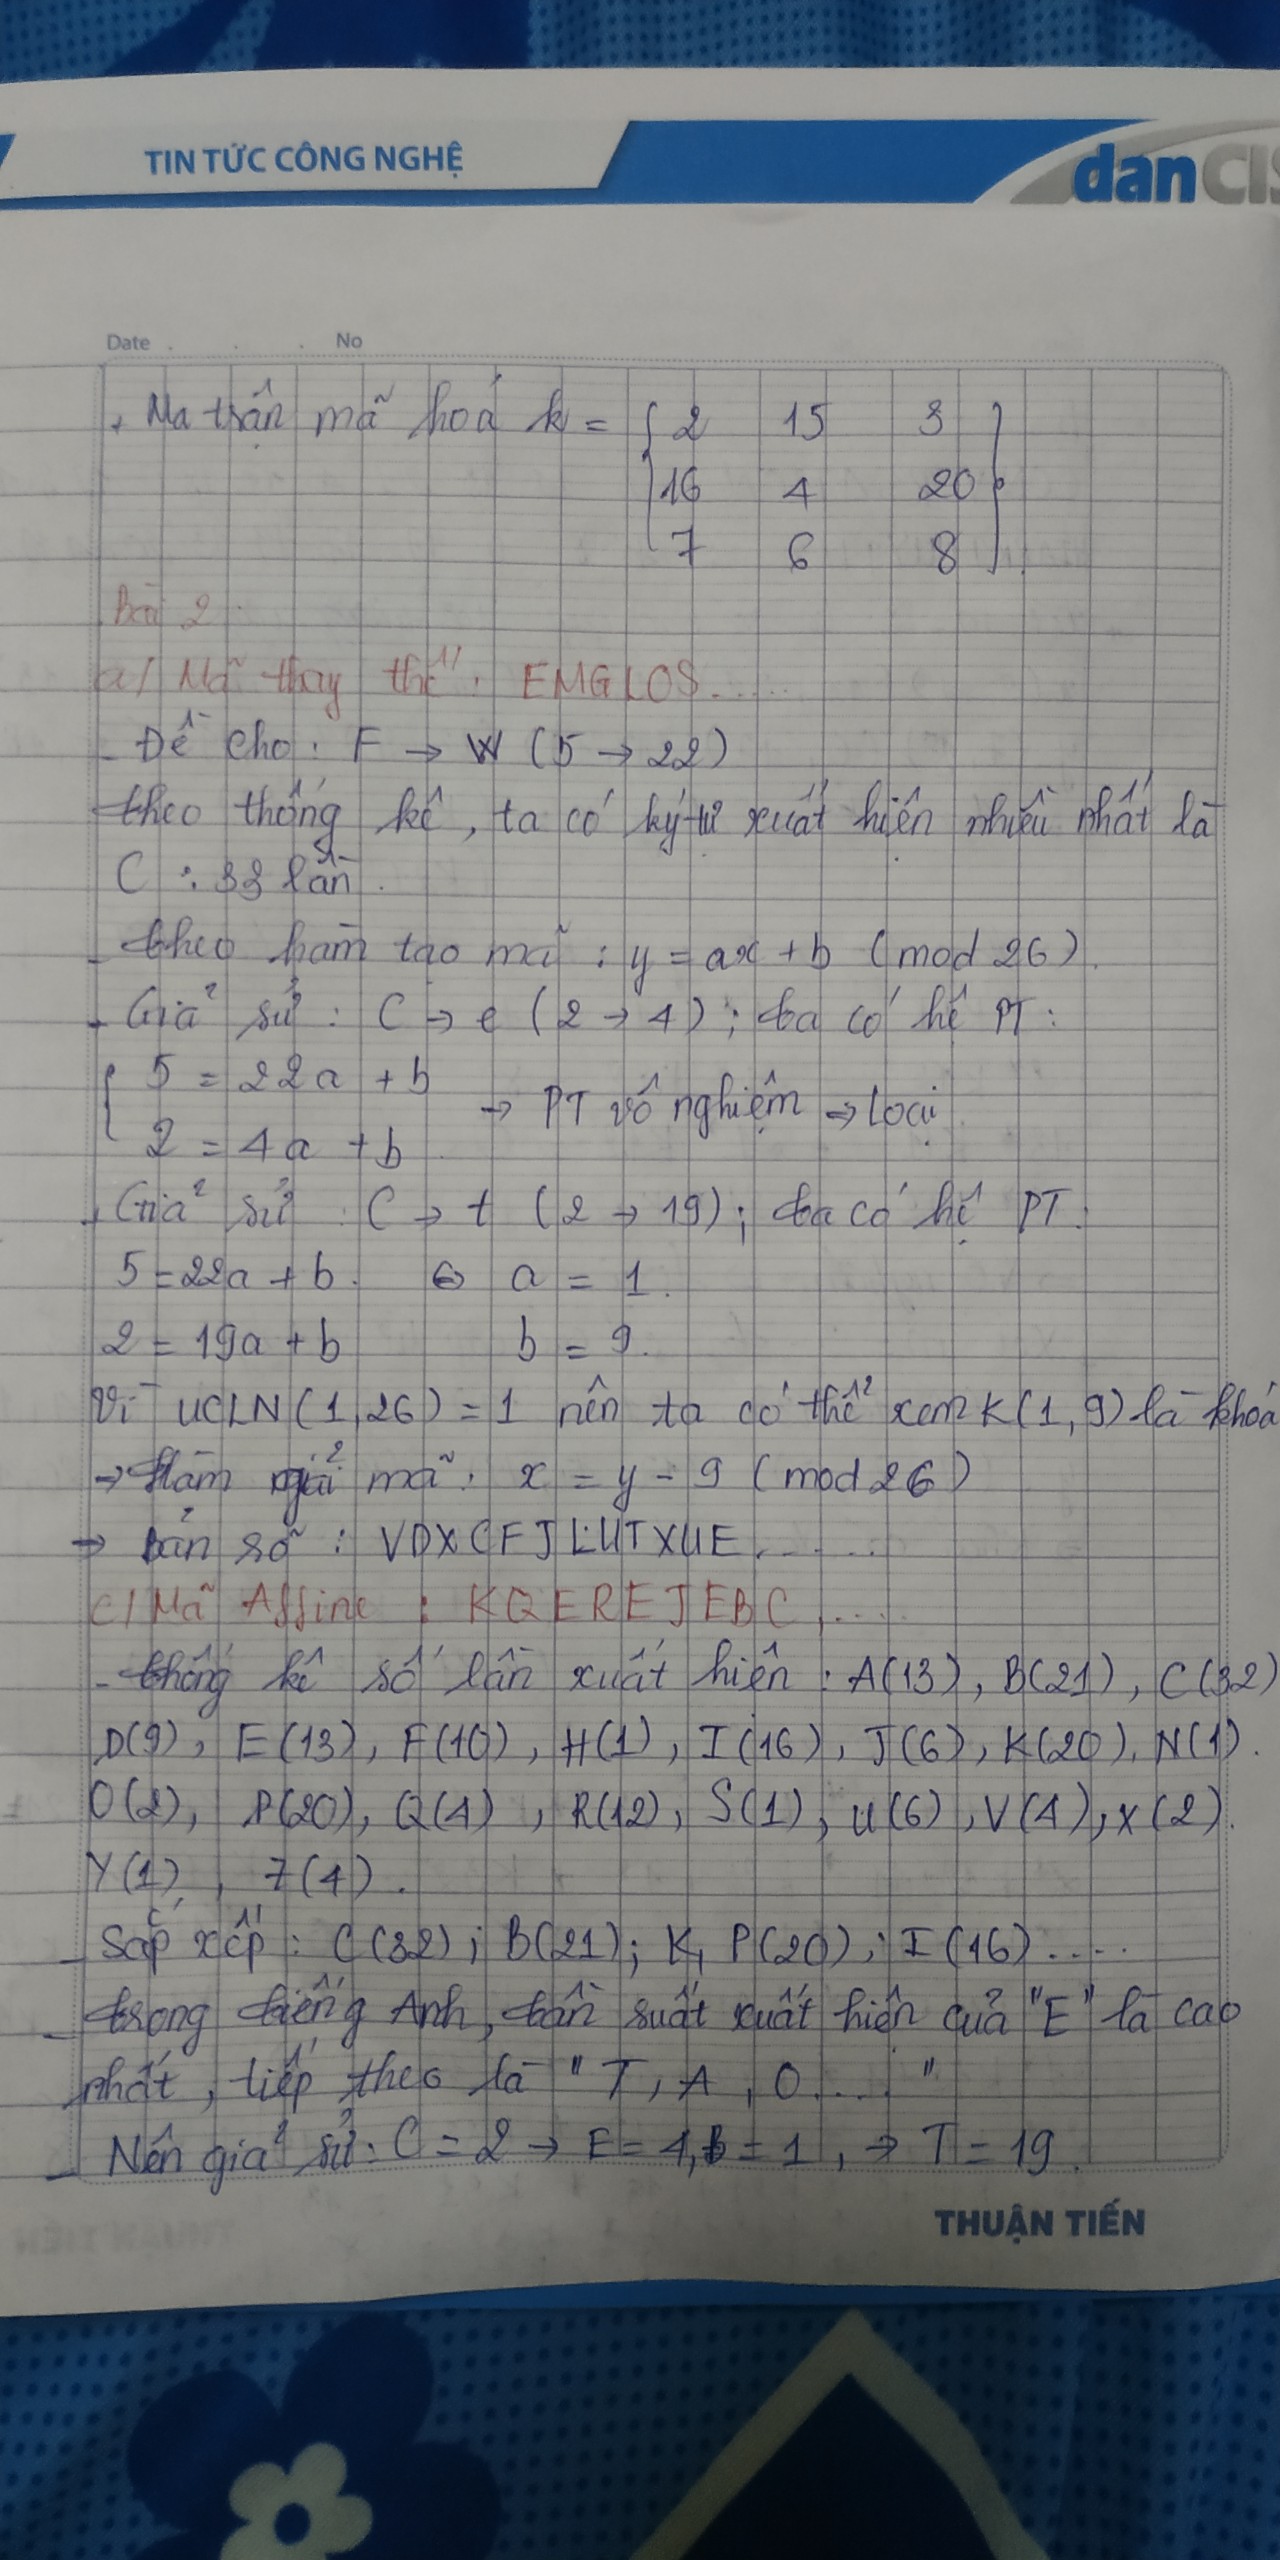 TIN TỨC CÔNG NGHỆ
danCIS
Date . . . No
+ Ma trận mã hoá k = 2 15 3
16 4 20
7 6 8
Bài 2
a/ Mã thay thế : EMGLOS.....
- Đề cho : F → W (5 → 22)
theo thống kê, ta có ký tự xuất hiện nhiều nhất là
C : 33 lần.
- theo hàm tạo mã : y = ax + b (mod 26).
+ Giả sử : C → e (2 → 4) ; ta có hệ PT :
5 = 22a + b
→ PT vô nghiệm → Loại
2 = 4a + b
+ Giả sử : C → t (2 → 19) ; ta có hệ PT :
5 = 22a + b. a = 1.
2 = 19a + b b = 9.
Vì UCLN(1,26) = 1 nên ta có thể xem K(1,9) là khoá
→ Hàm giải mã : x = y - 9 (mod 26)
→ bản số : VDXCFJLUTXUE......
c/ Mã Affine : KQEREJEBC,....
- thống kê số lần xuất hiện : A(13), B(21), C(32)
D(9), E(13), F(10), H(1), I(16), J(6), K(20), N(1).
O(2), P(20), Q(4), R(12), S(1), U(6), V(4), X(2).
Y(1), Z(4).
- Sắp xếp : C(32) ; B(21) ; K, P(20) ; I(16).....
- trong tiếng Anh, tần suất xuất hiện của "E" là cao
nhất, tiếp theo là "T, A, O.... "
- Nên giả sử : C = 2 → E = 4, B = 1, → T = 19.
THUẬN TIẾN